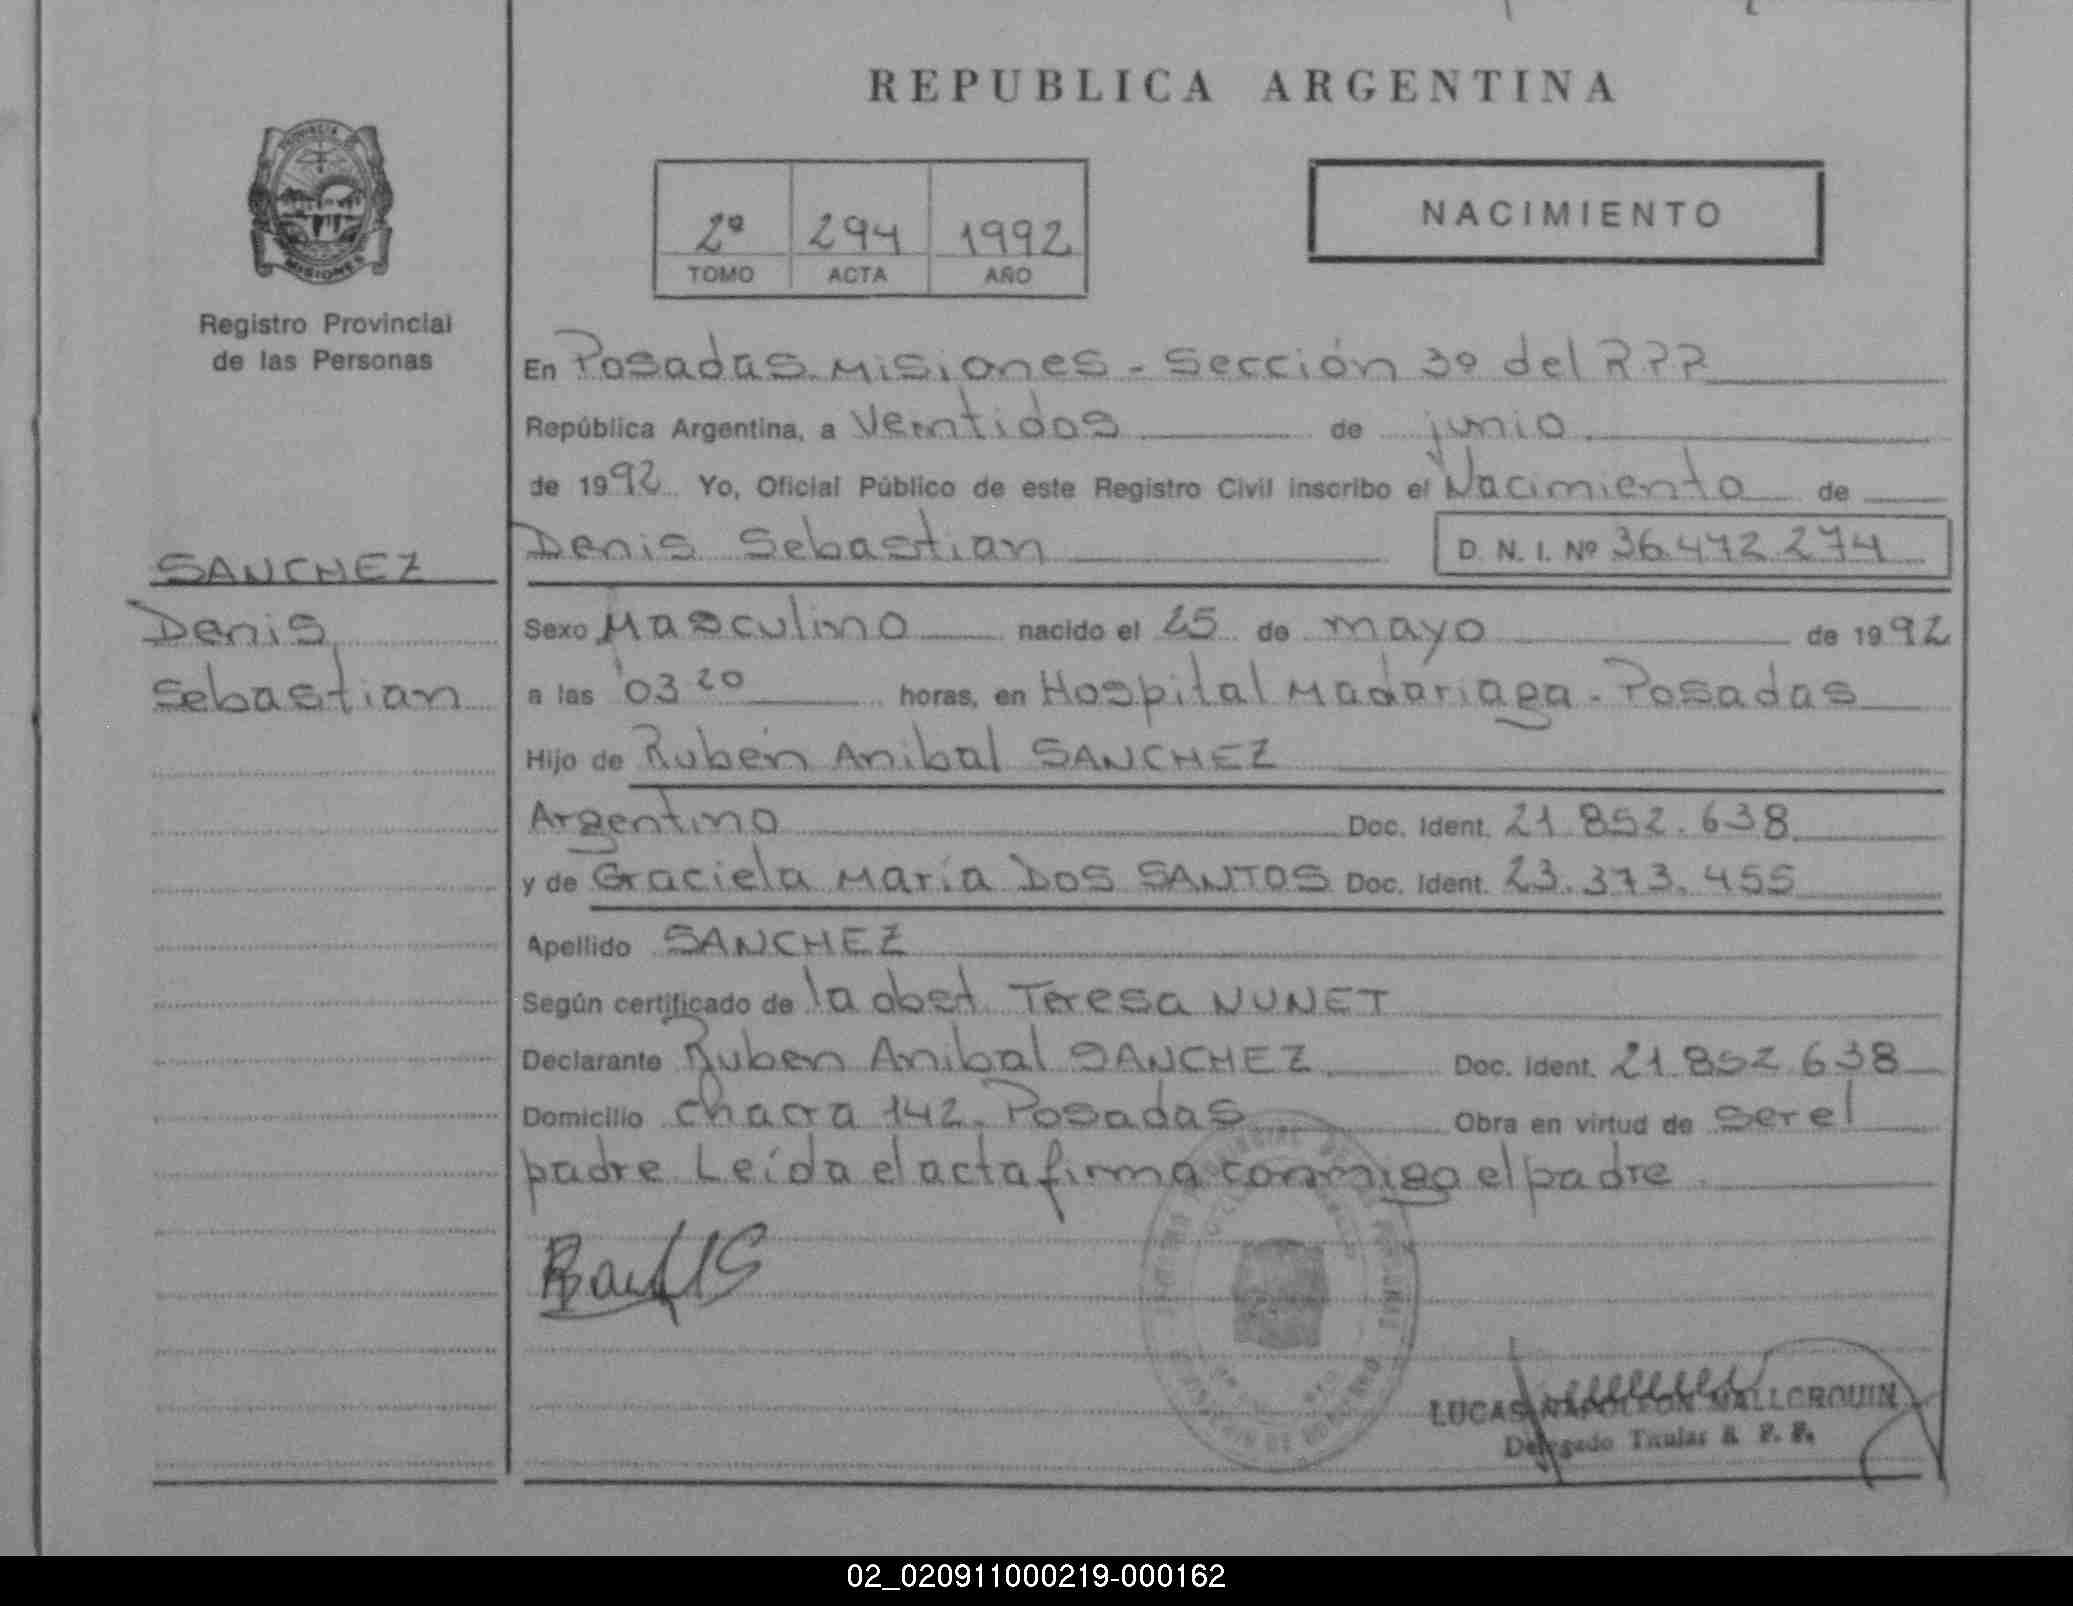 REPUBLICA ARGENTINA
PROVINCIA
MISIONES
Registro Provincial
de las Personas
2º 294 1992
TOMO ACTA AÑO
NACIMIENTO
En Posadas. Misiones - Sección 3º del RPP
República Argentina, a Veintidos de junio
de 1992 Yo, Oficial Público de este Registro Civil inscribo el Nacimiento de
Denis Sebastian D. N. I. Nº 36.472.274
SANCHEZ
Denis
Sebastian
Sexo Masculino nacido el 25 de mayo de 1992
a las 03 20 horas, en Hospital Madariaga - Posadas
Hijo de Rubén Anibal SANCHEZ
Argentino Doc. Ident. 21.852.638
y de Graciela María DOS SANTOS Doc. Ident. 23.373.455
Apellido SANCHEZ
Según certificado de la obst. Teresa NUNET
Declarante Ruben Anibal SANCHEZ Doc. Ident. 21.852.638
Domicilio chacra 142. Posadas Obra en virtud de ser el
padre Leída el acta firma conmigo el padre.
LUCAS NAPOLEON MALLORQUIN
Delegado Titular R. P. P.
02_020911000219-000162